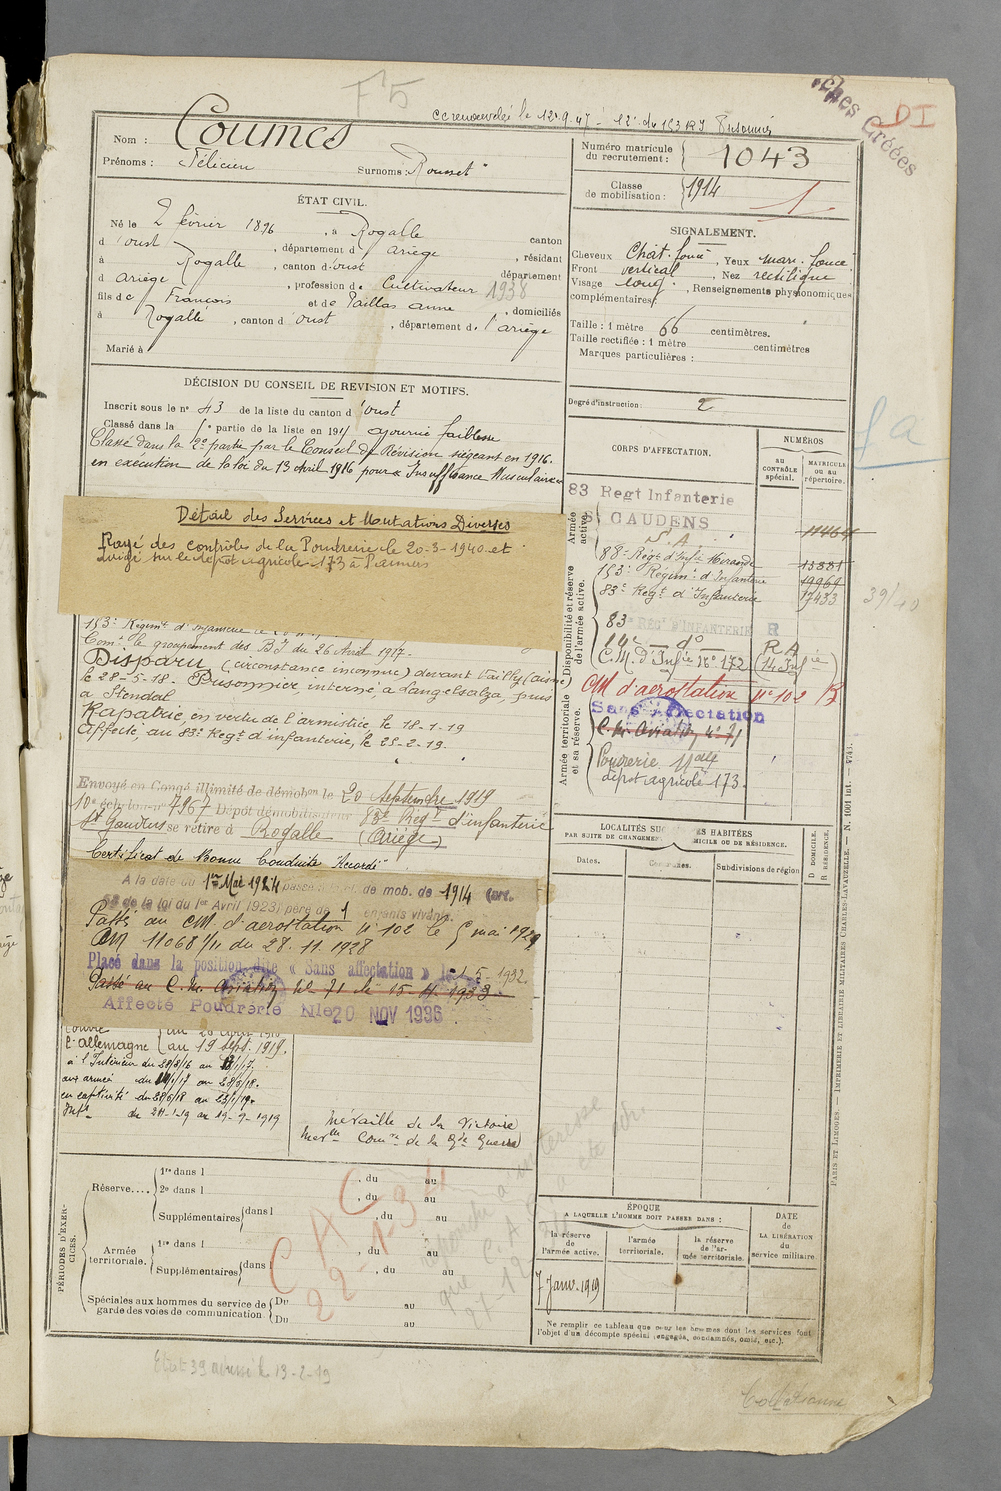 F 5
cc renouvelée le 12.9.47 - 12e du 153 RI Prisonnier
ches Créées
DI
Nom : Coumes
Prénoms : Félicien Surnoms : Rousset
Numéro matricule du recrutement : 1043
Classe de mobilisation : 1914
1
ÉTAT CIVIL.
Né le 2 février 1896, à Rogalle canton
d'oust, département d ariège, résidant
à Rogalle, canton d'oust département
d ariège, profession de Cultivateur 1938
fils de François et de Paillas anne, domiciliés
à Rogalle, canton d'oust, département de l'ariège
Marié à
SIGNALEMENT.
Cheveux Chat. foncé, Yeux mar. foncé
Front vertical, Nez rectiligne
Visage long. , Renseignements physionomiques
complémentaires:
Taille : 1 mètre 66 centimètres.
Taille rectifiée : 1 mètre centimètres
Marques particulières :
Degré d'instruction : 2
DÉCISION DU CONSEIL DE REVISION ET MOTIFS.
Inscrit sous le n° 43 de la liste du canton d'oust
Classé dans la 1e partie de la liste en 191 ajourné faiblesse
Classé dans la 2e partie par le Conseil de Révision siégeant en 1916.
en exécution de la loi du 13 Avril 1916 pour Insuffisance Musculaire
Détail des Services et Mutations Diverses
Rayé des contrôles de la Poudrerie le 20-3-1940 et
dirigé sur le dépôt agricole 173 à Pamiers
153e Régimt d'Infanterie le
Comt le groupement des B.I du 26 Avril 1917.
Disparu (circonstance inconnue) devant Vailly (aisne)
le 28-5-18. Prisonnier, interné, à Langelsalza, puis
à Stendal
Rapatrié, en vertu de l'armistice, le 18-1-19
Affecté, au 83e Regt d'infanterie, le 25-2-19.
Envoyé en Congé illimité de démobon le 20 septembre 1919
10e échelon n° 7967 Dépôt démobilisateur 83e Regt d'infanterie
St Gaudens se retire à Rogalle (Ariège)
Certificat de Bonne Conduite "Accordé"
A la date du 1er Mai 1924 passé de mob. de 1914 (art.
58 de la loi du 1er Avril 1923) père de 1 enfants vivants.
Passé au CM d'aérostation n° 102 le 5 mai 1929
DM 11068 1/11 du 28.11.1928
Placé dans la position dite « Sans affectation » le 1-5-1932.
Passé au C.M. Aviation N° 71 le 15-4-1933
Affecté Poudrerie Nle 20 NOV 1936
l'allemagne au 19 sept. 1919.
à l'Intérieur du 28/8/16 au
aux armées du au 28/5/18.
en captivité du 28/5/18 au
Intr du 24-1-19 au 19-9-1919
Médaille de la Victoire
Medlle Comve de la Gde Guerre
CORPS D'AFFECTATION.
NUMÉROS
au CONTRÔLE spécial.
MATRICULE ou au répertoire.
Armée active.
83 Regt Infanterie
St GAUDENS
S.A.
11464
Disponibilité et réserve de l'armée active.
88e Régt d'Infie Mirande 13331
153e Régimt d'Infanterie 19969
83e Regt d'Infanterie 17433
83e REGt D'INFANTERIE R
14e do R A
C.M. D'Infie N° 172 (14 Infie)
CM d'aérostation n° 102 R
Armée territoriale et sa réserve.
Sans Affectation
C.M. Aviation n° 71
Poudrerie Nale
dépôt agricole 173.
1a
39/40
LOCALITÉS SUCCESSIVES HABITÉES
PAR SUITE DE CHANGEMENT DE DOMICILE OU DE RÉSIDENCE.
Dates.
Communes.
Subdivisions de région
D DOMICILE. R RÉSIDENCE.
PÉRIODES D'EXERCICES.
Réserve....
1re dans l , du au
2e dans l , du au
Supplémentaires dans l , du au
Armée territoriale.
1re dans l , du au
Supplémentaires dans l , du au
Spéciales aux hommes du service de garde des voies de communication
Du au
Du au
C A C
22-1-34
ÉPOQUE
A LAQUELLE L'HOMME DOIT PASSER DANS :
la réserve de l'armée active.
l'armée territoriale.
la réserve de l'armée territoriale.
DATE de LA LIBÉRATION du service militaire.
7 Janv. 1919
Ne remplir ce tableau que pour les hommes dont les services font
l'objet d'un décompte spécial (engagés, condamnés, omis, etc.).
PARIS ET LIMOGES. — IMPRIMERIE ET LIBRAIRIE MILITAIRES CHARLES-LAVAUZELLE. — N. 1001 int.
Etat 39 adressé le 13-2-19